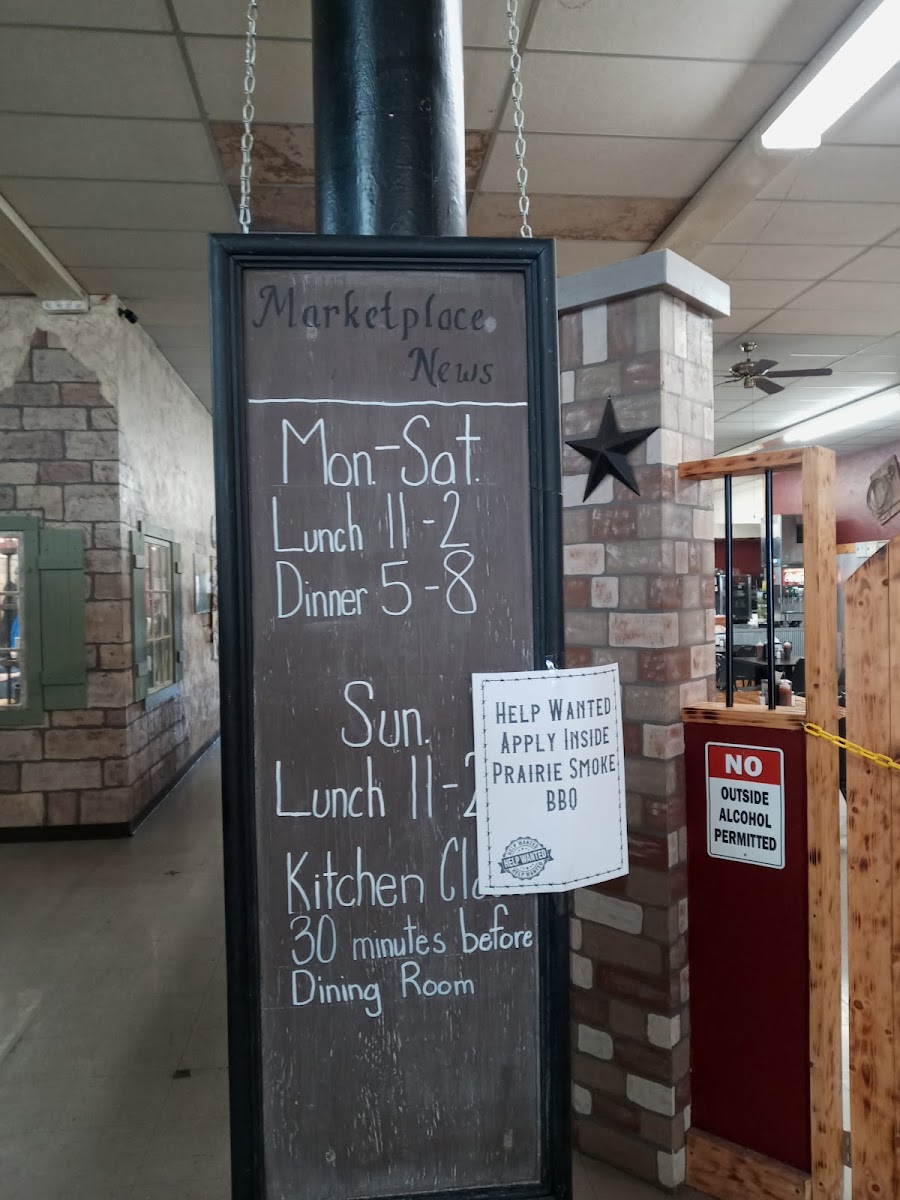 Marketplace
News
Mon.-Sat.
Lunch 11-2
Dinner 5-8
Sun.
Lunch 11-2
Kitchen
30 minutes before
Dining Room
HELP WANTED
APPLY INSIDE
PRAIRIE SMOKE
BBQ
HELP WANTED
HELP WANTED
HELP WANTED
NO
OUTSIDE
ALCOHOL
PERMITTED